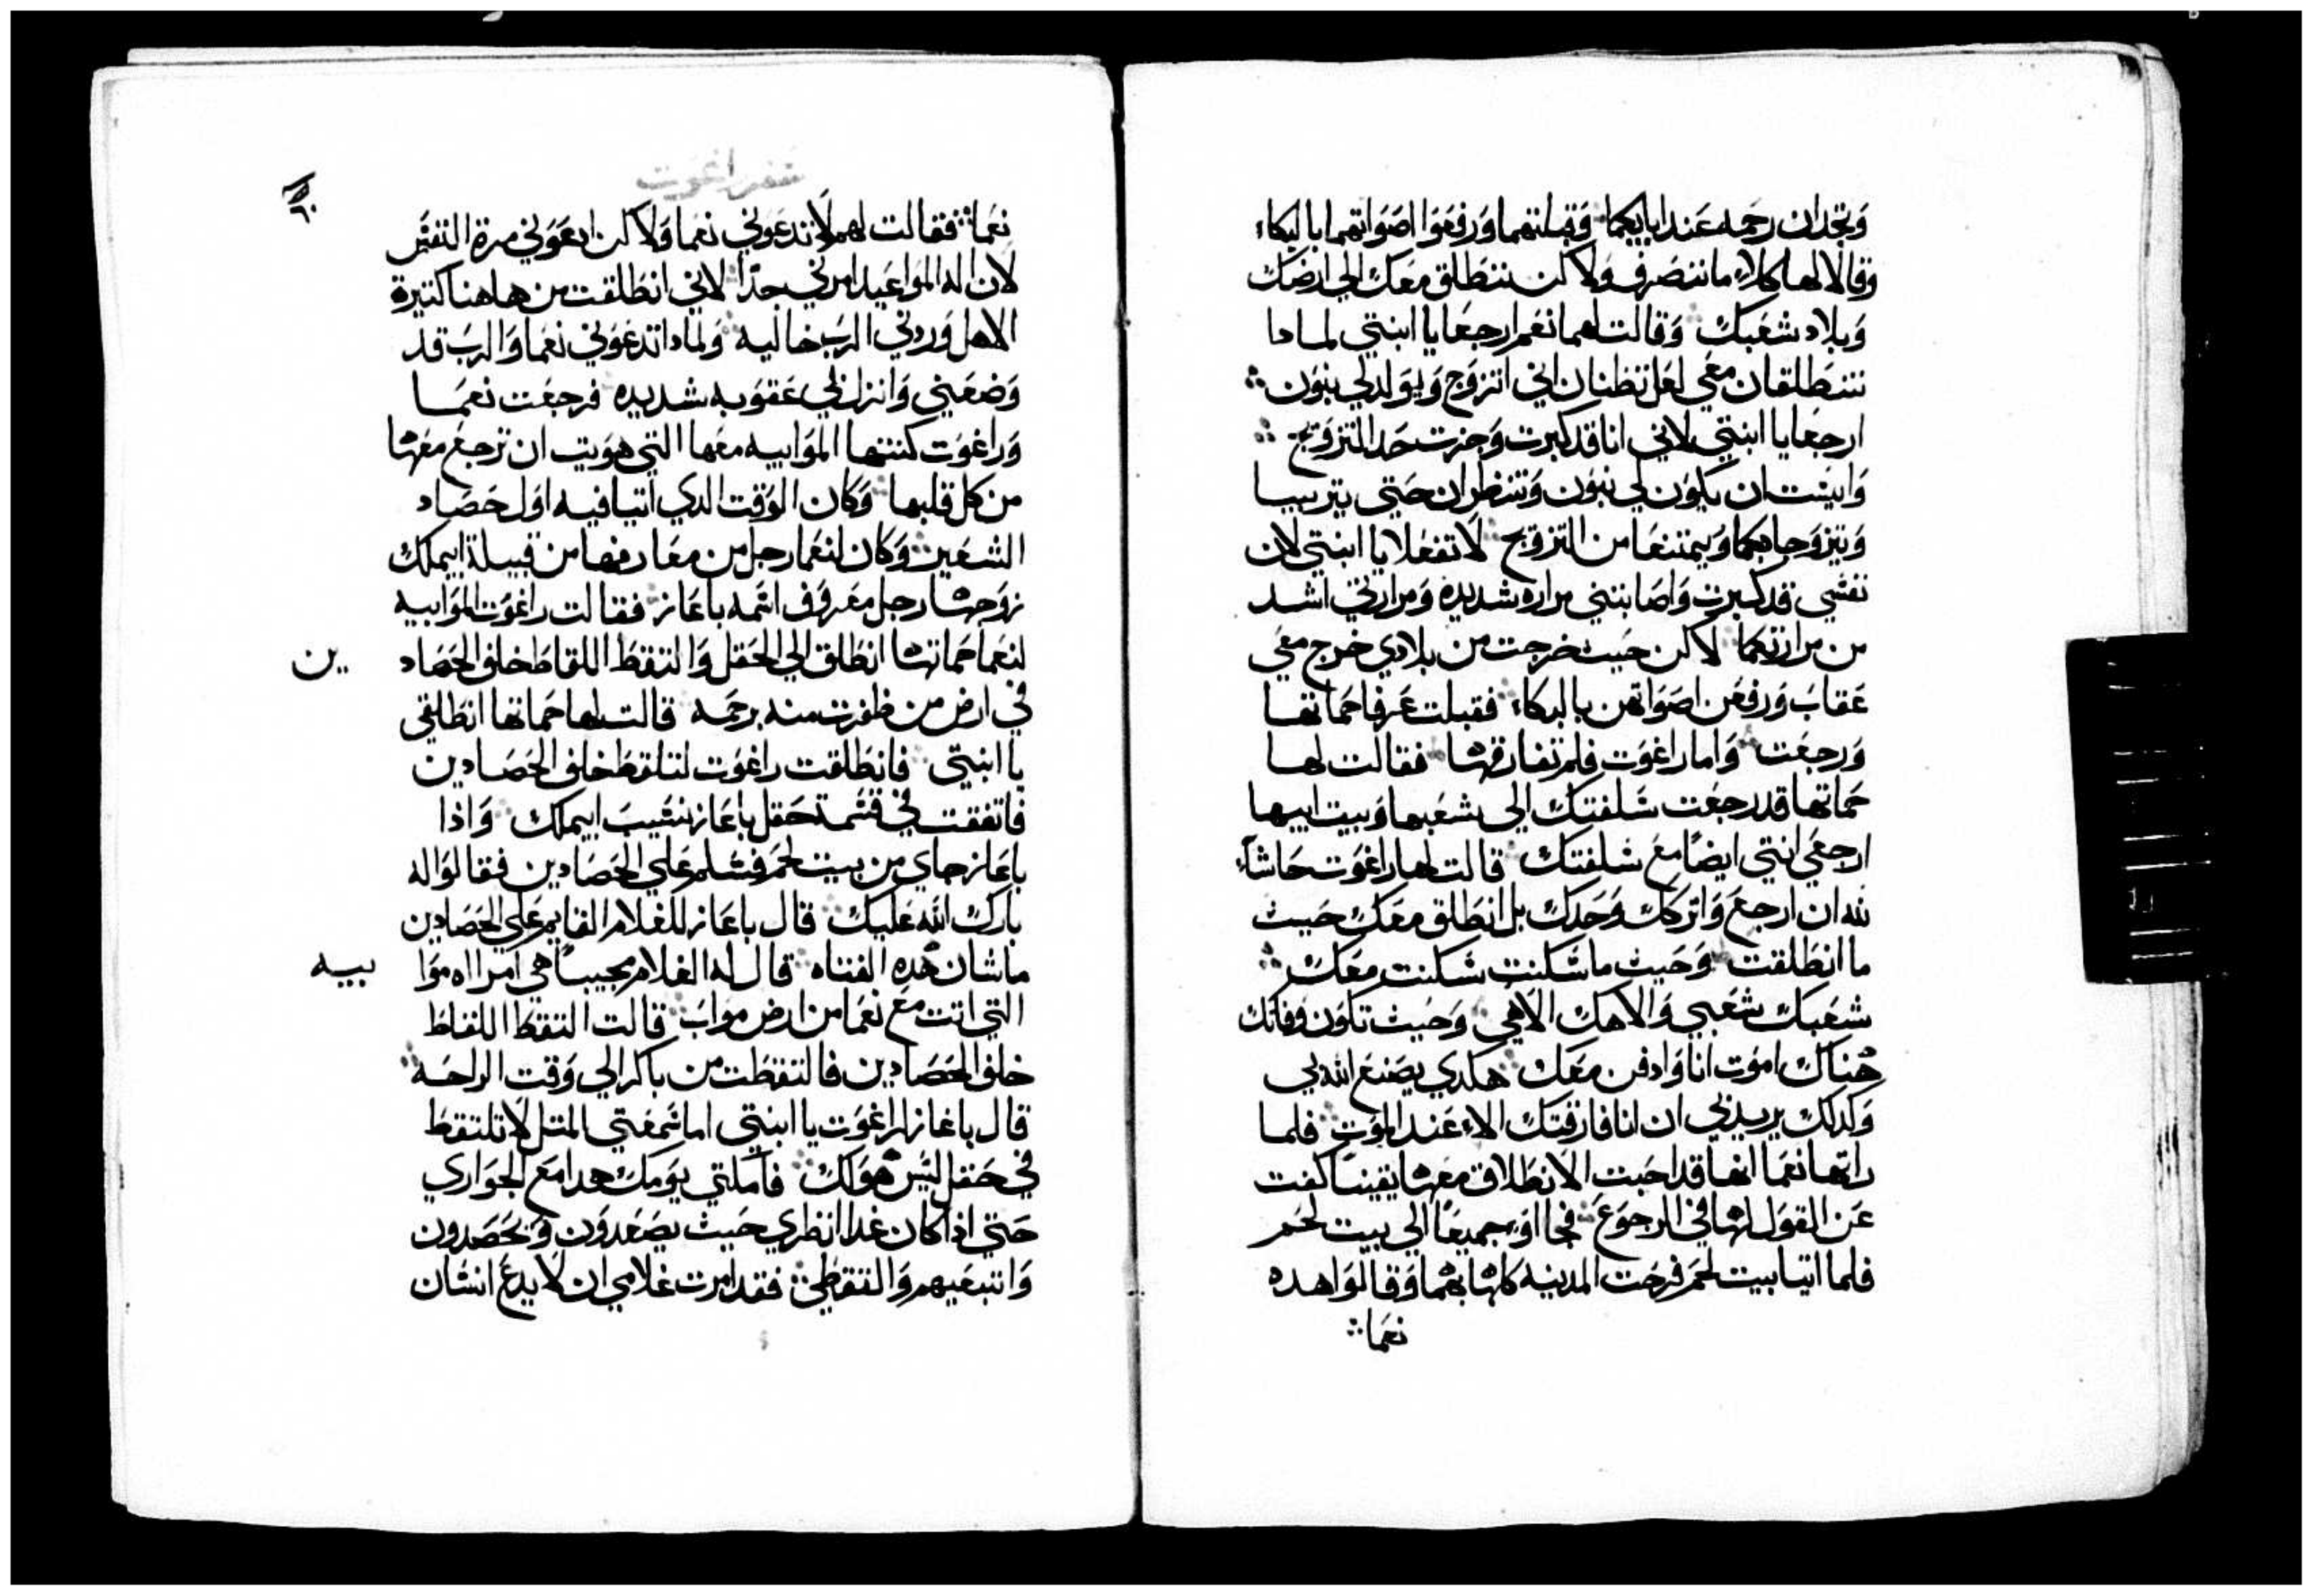 وتجدان رحمه عند ابايكما وقبلتهما ورفعوا اصواتهما بالبكاء
وقالا لها كلا ما ننصرف ولاكن ننطلق معك الى ارضك
وبلاد شعبك وقالت لهما نعم ارجعا يا ابنتي لمادا
تنطلقان معي لعل تظنان اني اتزوج ويولد لي بنون
ارجعا يا ابنتي لاني انا قد كبرت وجزت حد التزويج
وايست ان يكون لي بنون وتنظران حتى يتربيا
ويتزوجا بكما ويمتنعا من التزويج لا تفعلا يا ابنتي لان
نفسي قد كبرت واصابتني مراره شديده ومرارتي اشد
من مرارتكما لاكن حيث خرجت من بلادي خرج معي
عقاب ورفعن اصواتهن بالبكاء فقبلت عرفا حماتها
ورجعت واما راغوت فلم تفارقها فقالت لها
حماتها قد رجعت سلفتك الى شعبها وبيت ابيها
ارجعي انتي ايضا مع سلفتك قالت لها راغوت حاشاء
لله ان ارجع واتركك وحدك بل انطلق معك حيث
ما انطلقت وحيث ما سكنت سكنت معك
شعبك شعبي والاهك الاهي وحيث تكون وفاتك
هناك اموت انا وادفن معك هكدي يصنع الله بي
وكدلك يريد بي ان انا فارقتك الا عند الموت فلما
راتها نعما انها قد احبت الانطلاق معها يقينا كفت
عن القول لها في الرجوع فجااو جميعا الى بيت لحم
فلما اتيا بيت لحم فرحت المدينه كلها بهما وقالوا هده
نعما
سفر راغوت
٦٠
نعما فقالت لهم لا تدعوني نعما ولاكن ادعوني مرة النفس
لان اله المواعيد امرني جدا لاني انطلقت من هاهنا كتيرة
الاهل وردني الرب خاليه ولمادا تدعوني نعما والرب قد
وضعني وانزل بي عقوبه شديده فرجعت نعما
وراغوت كنتها الموابيه معها التي هويت ان ترجع معها
من كل قلبها وكان الوقت الدي اتيا فيه اول حصاد
الشعير وكان لنعما رجل من معارفها من قبيلة ايملك
زوجها رجل معروف اسمه باعاز فقالت راغوت الموابيه
لنعما حماتها انطلق الى الحقل والتقط اللقاط خلف الحصاد
ين
في ارض من ظفرت منه برحمه قالت لها حماتها انطلقي
يا ابنتي فانطلقت راغوت لتلقط خلف الحصادين
فاتفقت في قسمة حقل باعاز نسيب ايملك واذا
باعاز جاي من بيت لحم فسلم على الحصادين فقالوا له
بارك الله عليك قال باعاز للغلام القايم على الحصادين
ما شان هده الفتاه قال له الغلام مجيبا هي امراه موا
بيه
التي اتت مع نعما من ارض مواب قالت التقط اللقاط
خلف الحصادين فالتقطت من باكر الى وقت الراحه
قال باعاز لراغوت يا ابنتي اما سمعتي المتل لا تلتقط
في حقل ليس هو لك فاملتي يومك هدا مع الجواري
حتى اذا كان غدا انظري حيث يصعدون ويحصدون
واتبعيهم والتقطي فقد امرت غلامي ان لا يدع انسان